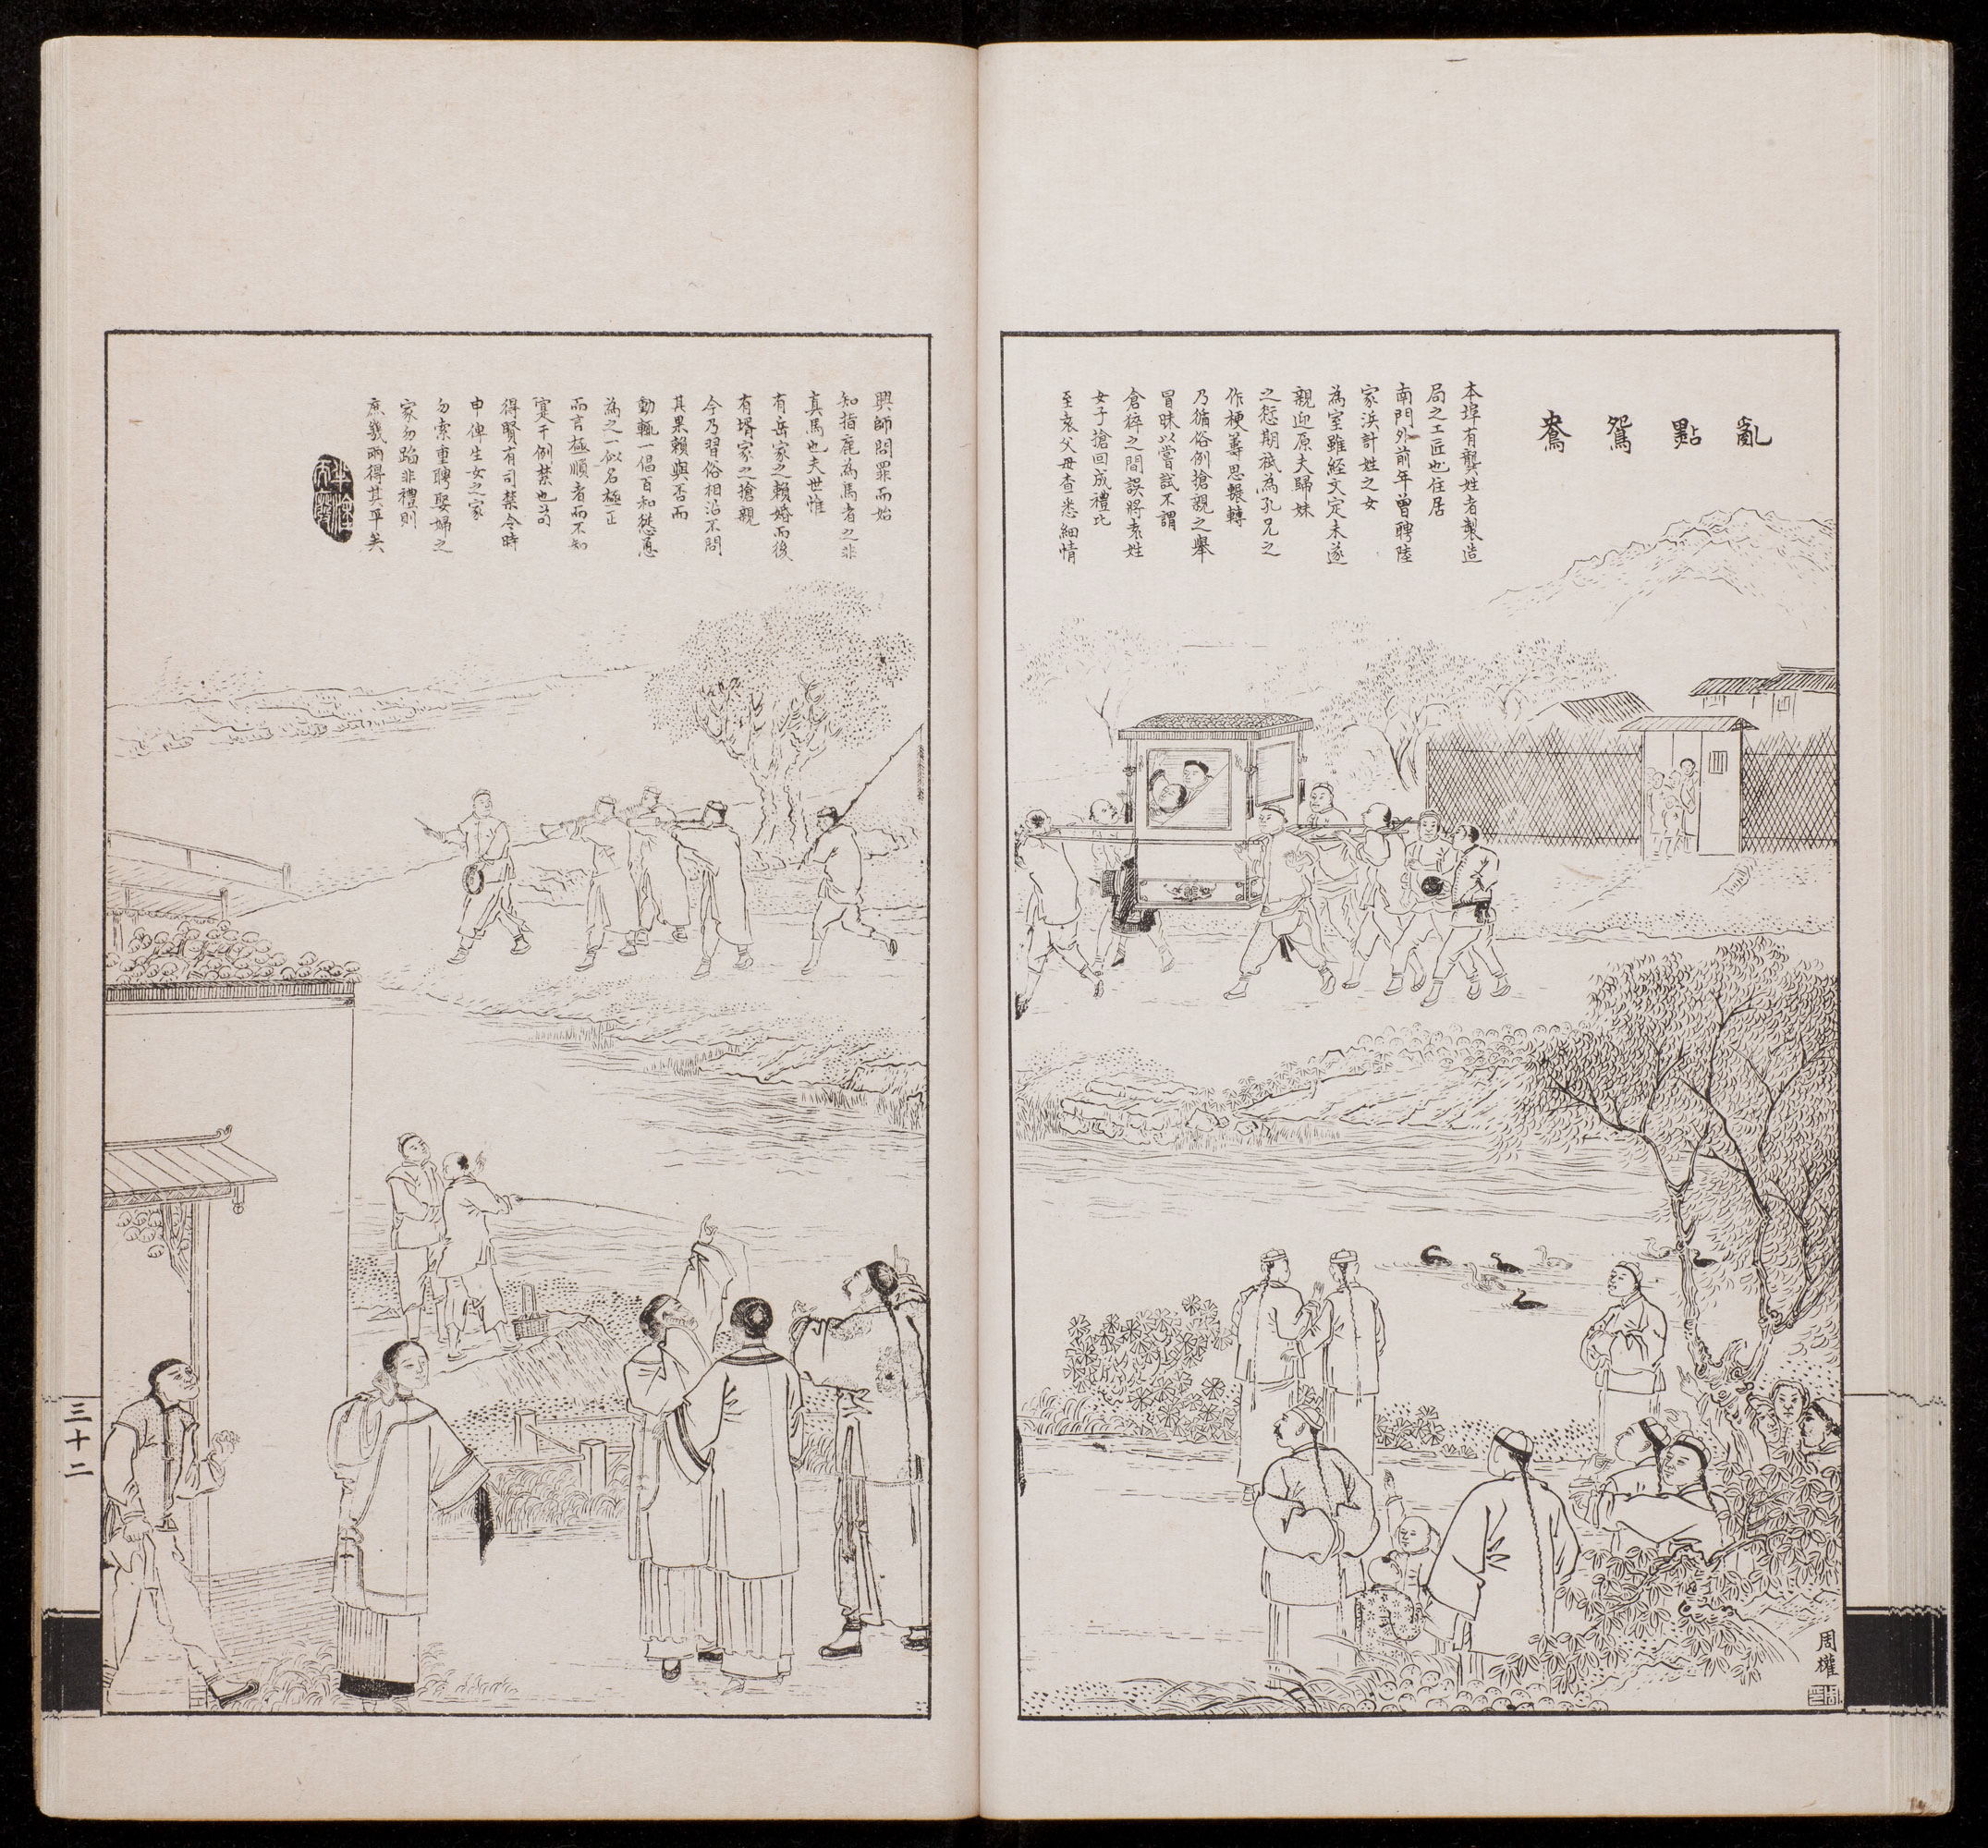 亂點鴛鴦
本埠有龔姓者製造
局之工匠也住居
南門外前年曾聘陸
家浜計姓之女
為室雖經文定未遂
親迎原夫歸妹
之愆期祇為孔兄之
作梗籌思輾轉
乃循俗例搶親之舉
冒昧以嘗試不謂
倉猝之間誤將袁姓
女子搶回成禮比
至袁父母查悉細情
興師問罪而始
知指鹿為馬者之非
真馬也夫世惟
有岳家之賴婚而後
有壻家之搶親
今乃習俗相沿不問
其果賴與否而
動輒一倡百和慫恿
為之一似名極正
而言極順者而不知
寔干例禁也苟
得賢有司禁令時
申俾生女之家
勿索重聘娶婦之
家勿蹈非禮則
庶幾兩得其平矣
周權
三十二